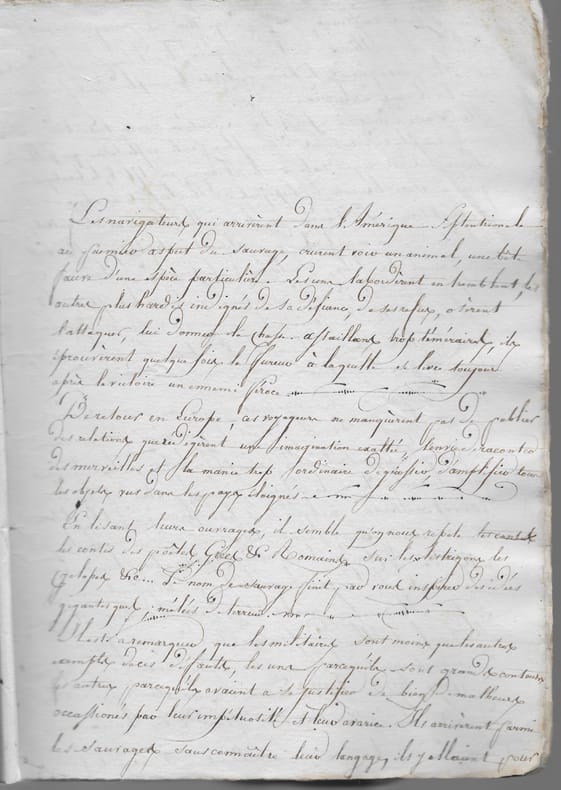 Les navigateurs qui arrivèrent dans l'Amérique Septentionale
au premier aspect du Sauvage, crurent voir un animal, une bête
fauve d'une espèce particulière. Les uns l'abordèrent en tremblant, les
autres plus hardis indignés de sa défiance, de ses refus, osèrent
l'attaquer, lui donner la chasse. assaillans trop téméraires, ils
éprouvèrent quelque fois la fureur à laquelle se livre toujours
après la victoire un ennemi féroce.
De retour en Europe, ces voyageurs ne manquèrent pas de publier
des relations que rédigèrent une imagination exaltée, l'envie de raconter
des merveilles et la manie trop ordinaire de grossir, d'amplifier tous
les objets vus dans les pays éloignés
En lisant leurs ouvrages, il semble qu'on nous repete
les contes des poëtes Grecs & Romains sur les lestrigons les
cyclopes &c... Le nom de Sauvage finit par vous inspirer des idées
gigantesques, mêlées de terreur.
Il est a remarquer que les militaires sont moins que les autres
exempts de ces défauts, les uns parcequ'ils sont grands conteurs,
les autres parcequ'ils avaient a se justifier de bien de malheurs
occasionés par leur impétuosité et leur avarice. Ils arrivèrent parmi
les Sauvages sans connaître leur langage, ils y allaient pour